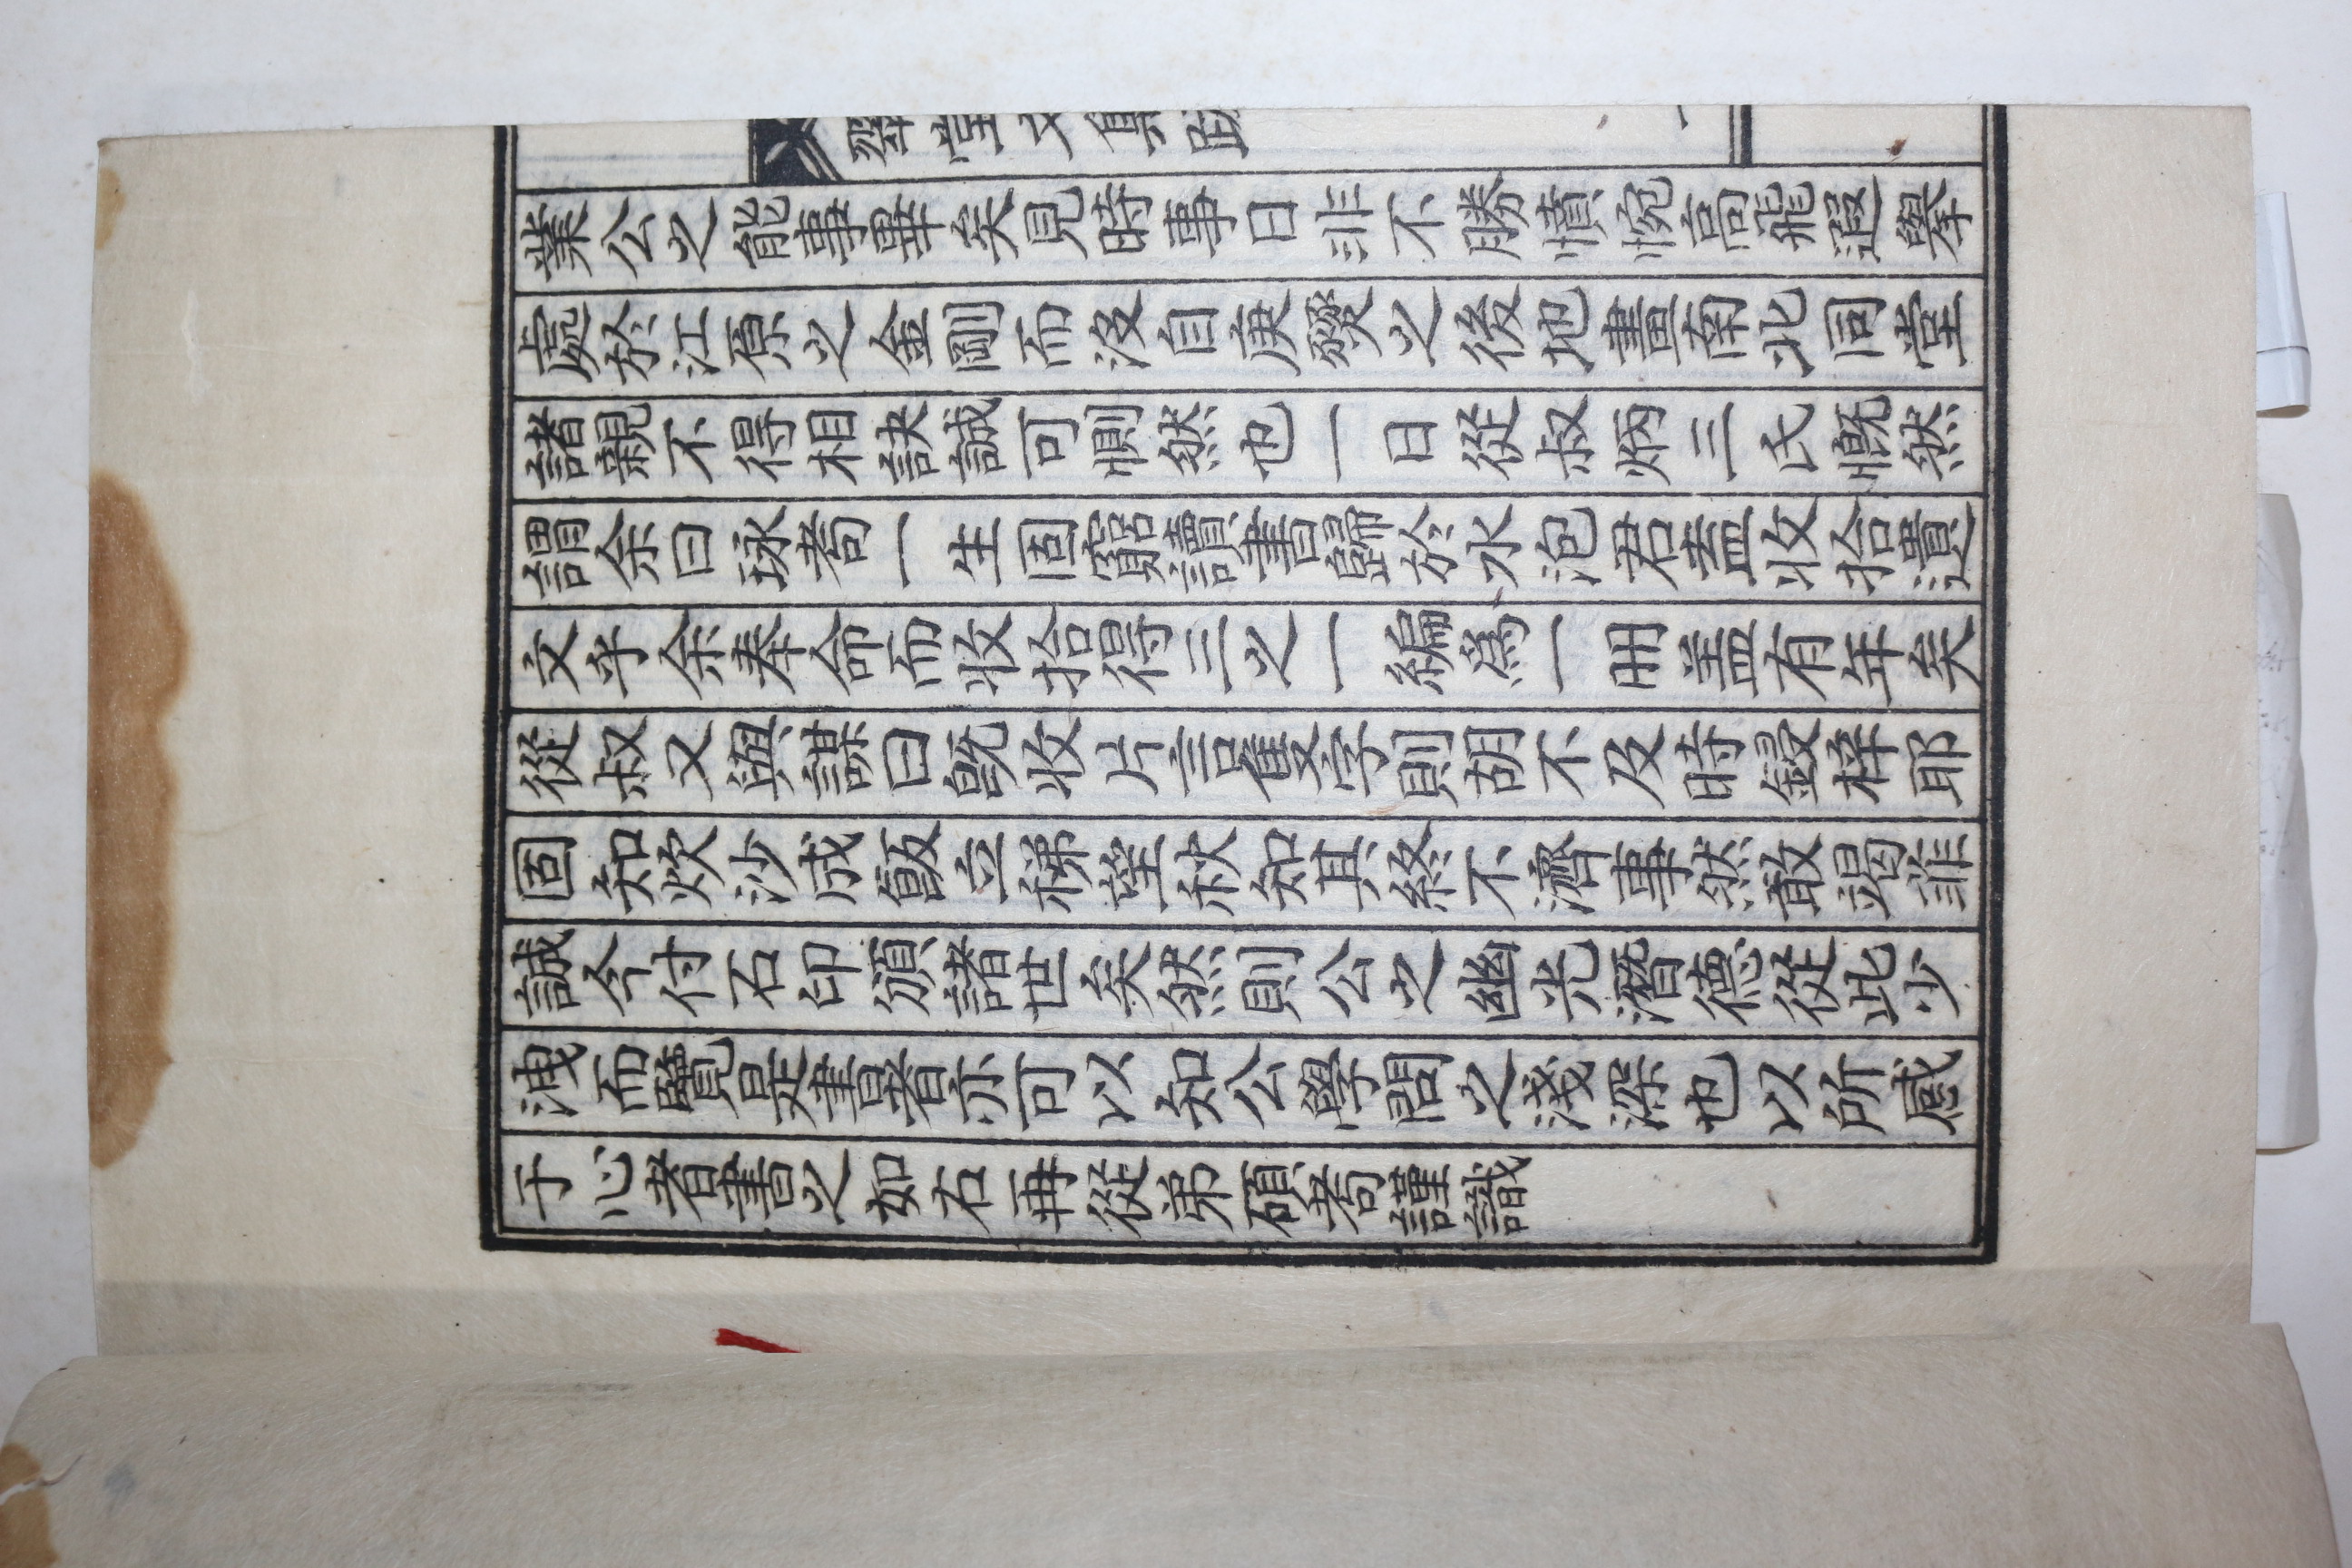 翠堂文集跋
一
業公之能事畢矣見時事日非不勝憤惋高飛遐擧
處於江原之金剛而沒自庚燹之後地畫南北同堂
諸親不得相訣誠可惻然也一日從叔炳三氏慨然
謂余曰琭耇一生固窮讀書歸於水泡君盍收拾遺
文乎余奉命而收拾得三之一編爲一冊盖有年矣
從叔又與謀曰旣收片言隻字則胡不及時鋟梓耶
固知炊沙成飯立稊望秋知其終不濟事然敢竭菲
誠今付石印頒諸世矣然則公之幽光潛德從此少
洩而覽是書者亦可以知公學問之淺深也以所感
于心者書之如右再從弟碩耇謹識